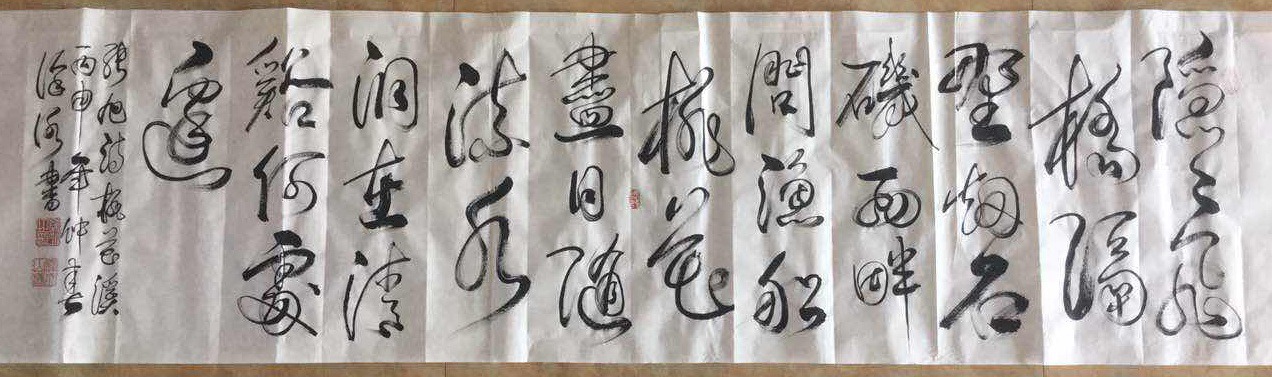 隱〻飛
橋隔
野烟石
磯西畔
問漁船
桃花
盡日随
流水
洞在清
谿何處
邊
張旭詩桃花溪
丙申年仲春
書